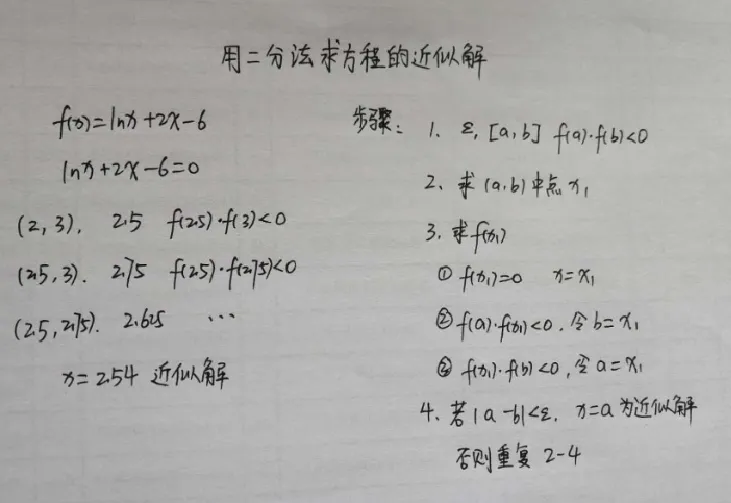 用二分法求方程的近似解
f(x)=lnx+2x-6
lnx+2x-6=0
(2,3). 2.5 f(2.5)·f(3)<0
(2.5,3). 2.75 f(2.5)·f(2.75)<0
(2.5,2.75). 2.625 ...
x=2.54 近似解
步骤: 1、ε,[a,b] f(a)·f(b)<0
2、求(a,b)中点x₁
3、求f(x₁)
① f(x₁)=0 x=x₁
② f(a)·f(x₁)<0,令b=x₁
③ f(x₁)·f(b)<0,令a=x₁
4、若|a-b|<ε. x=a为近似解
否则重复 2-4